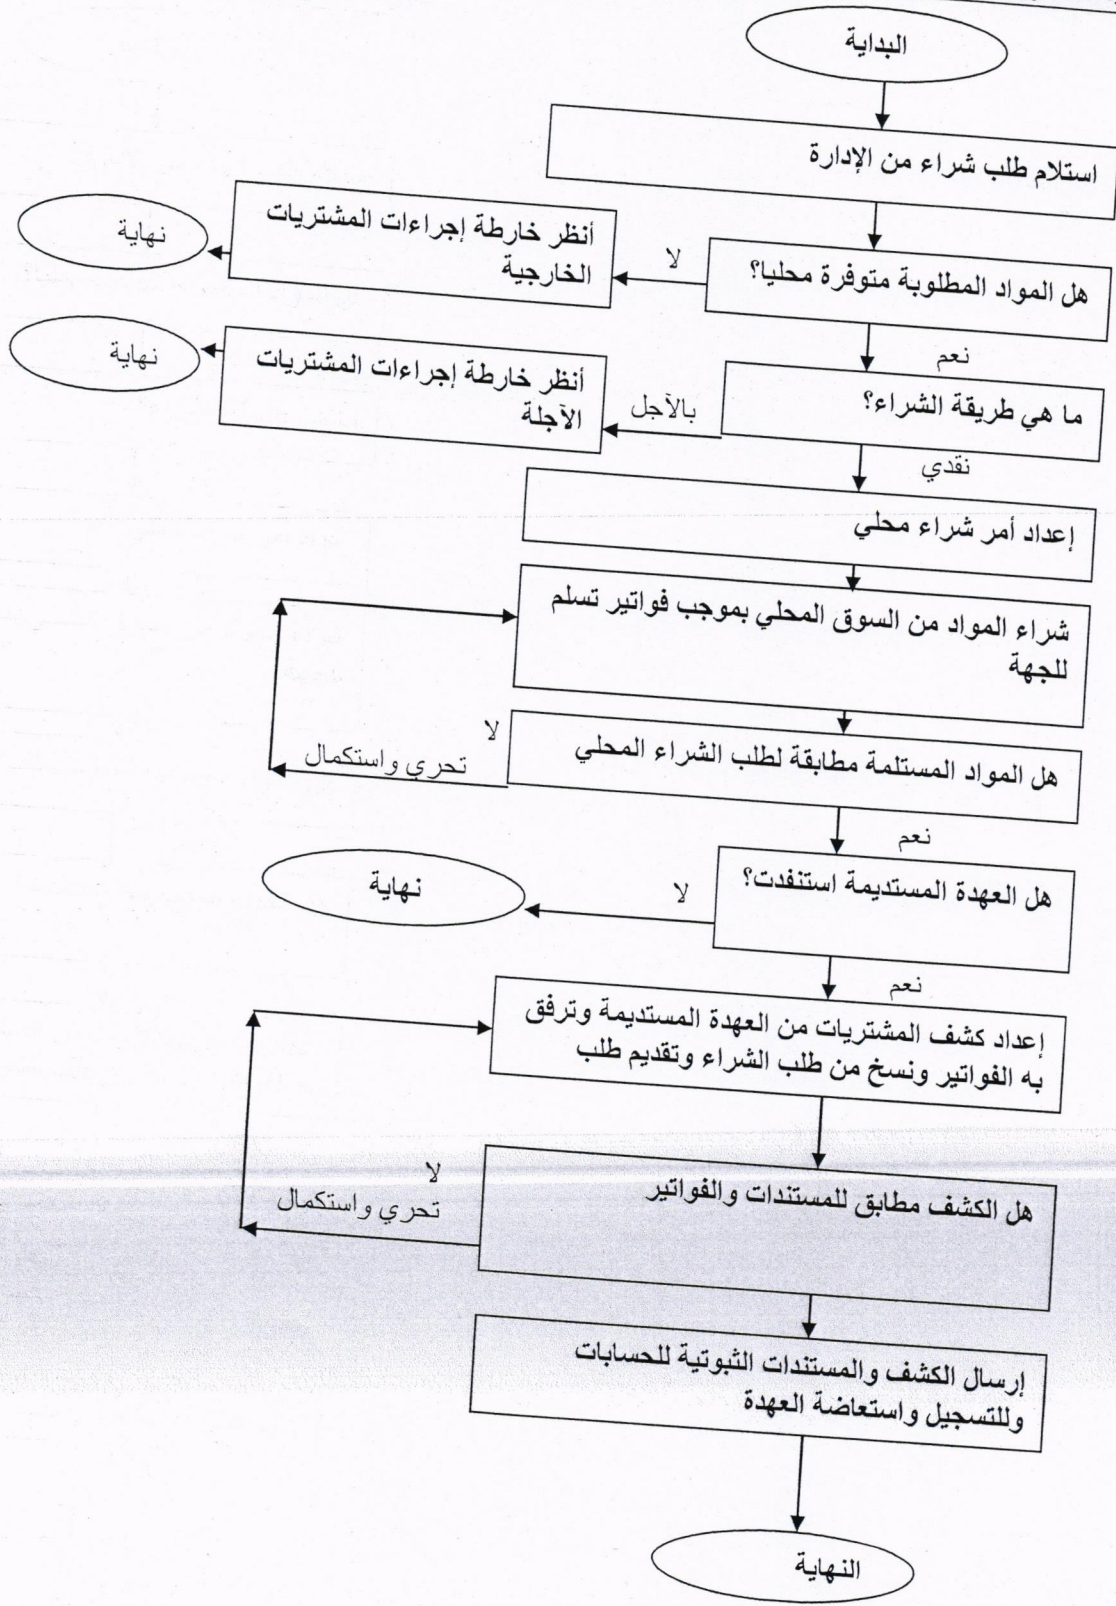 البداية
استلام طلب شراء من الإدارة
هل المواد المطلوبة متوفرة محليا؟
لا
أنظر خارطة إجراءات المشتريات
الخارجية
نهاية
نعم
ما هي طريقة الشراء؟
بالآجل
أنظر خارطة إجراءات المشتريات
الآجلة
نهاية
نقدي
إعداد أمر شراء محلي
شراء المواد من السوق المحلي بموجب فواتير تسلم
للجهة
هل المواد المستلمة مطابقة لطلب الشراء المحلي
لا
تحري واستكمال
نعم
هل العهدة المستديمة استنفدت؟
لا
نهاية
نعم
إعداد كشف المشتريات من العهدة المستديمة وترفق
به الفواتير ونسخ من طلب الشراء وتقديم طلب
هل الكشف مطابق للمستندات والفواتير
لا
تحري واستكمال
إرسال الكشف والمستندات الثبوتية للحسابات
وللتسجيل واستعاضة العهدة
النهاية